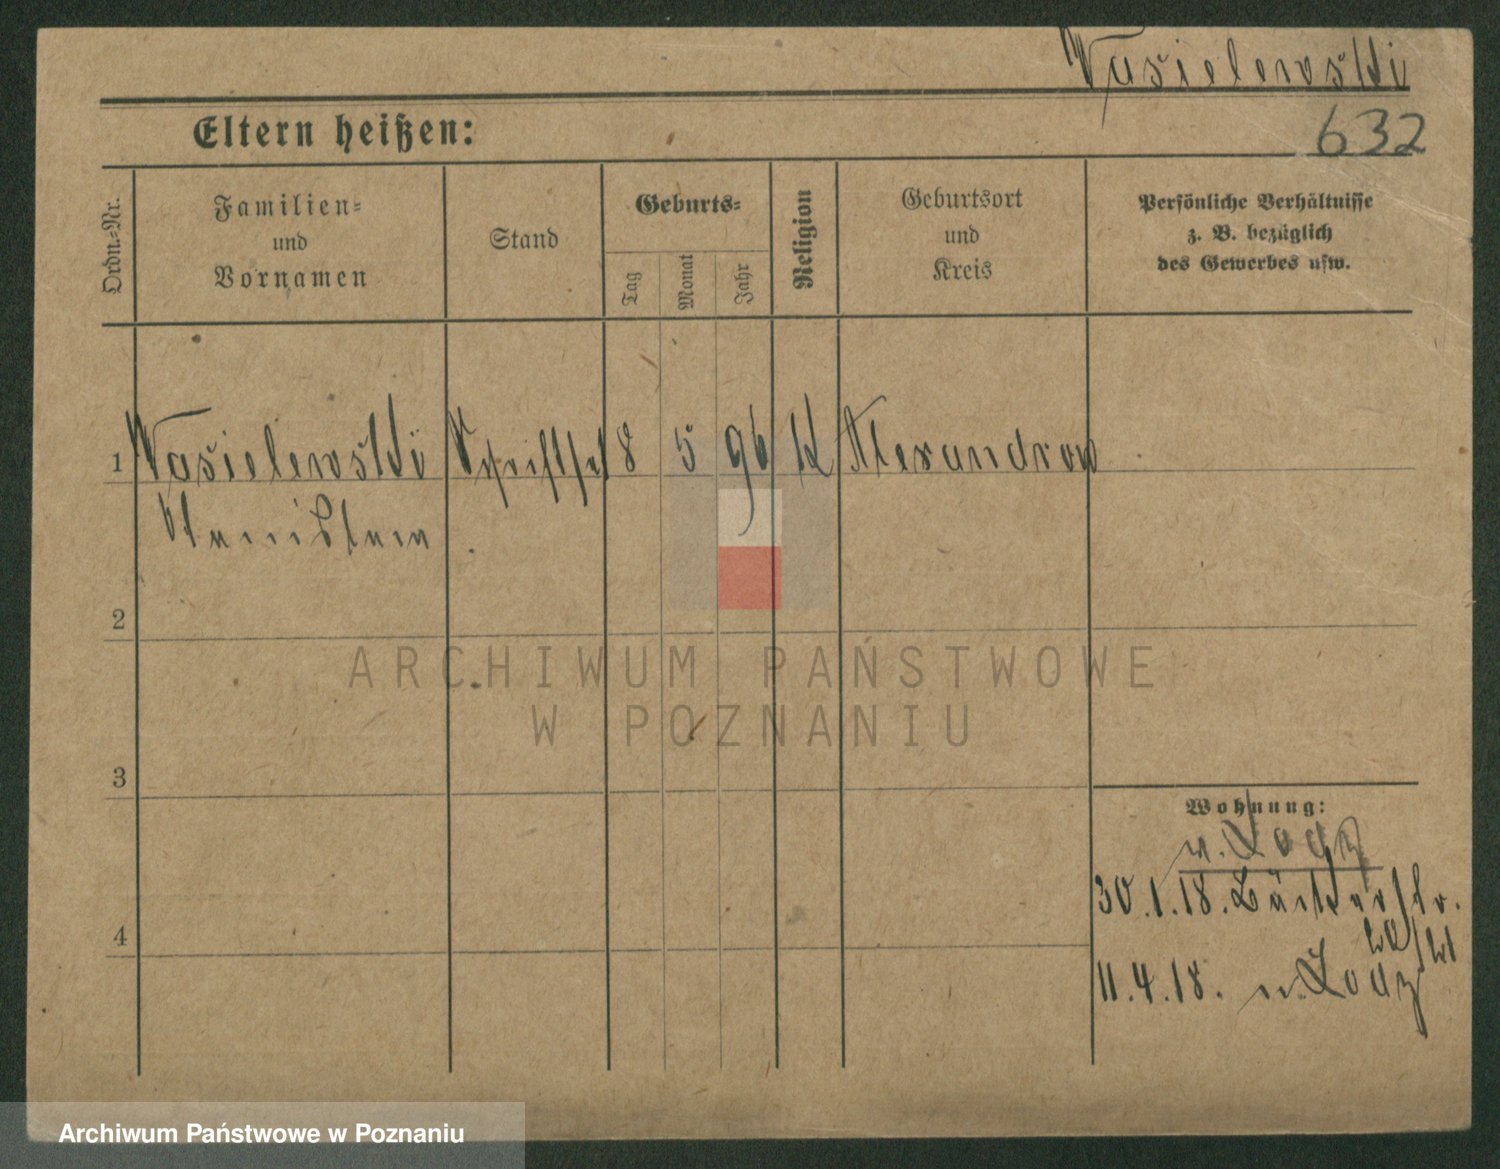 Wasielewski
632
Eltern heißen:
Ordn.-Nr.
Familien-
und
Vornamen
Stand
Geburts-
Tag
Monat
Jahr
Religion
Geburtsort
und
Kreis
Persönliche Verhältnisse
z. B. bezüglich
des Gewerbes usw.
1 Wasielewski 8 5 96 K Alexandrow
Stanislaw
2
ARCHIWUM PAŃSTWOWE
W POZNANIU
3
Wohnung:
n. Lodz
30.1.18. Bäckerstr.
4
11.4.18. n. Lodz
Archiwum Państwowe w Poznaniu